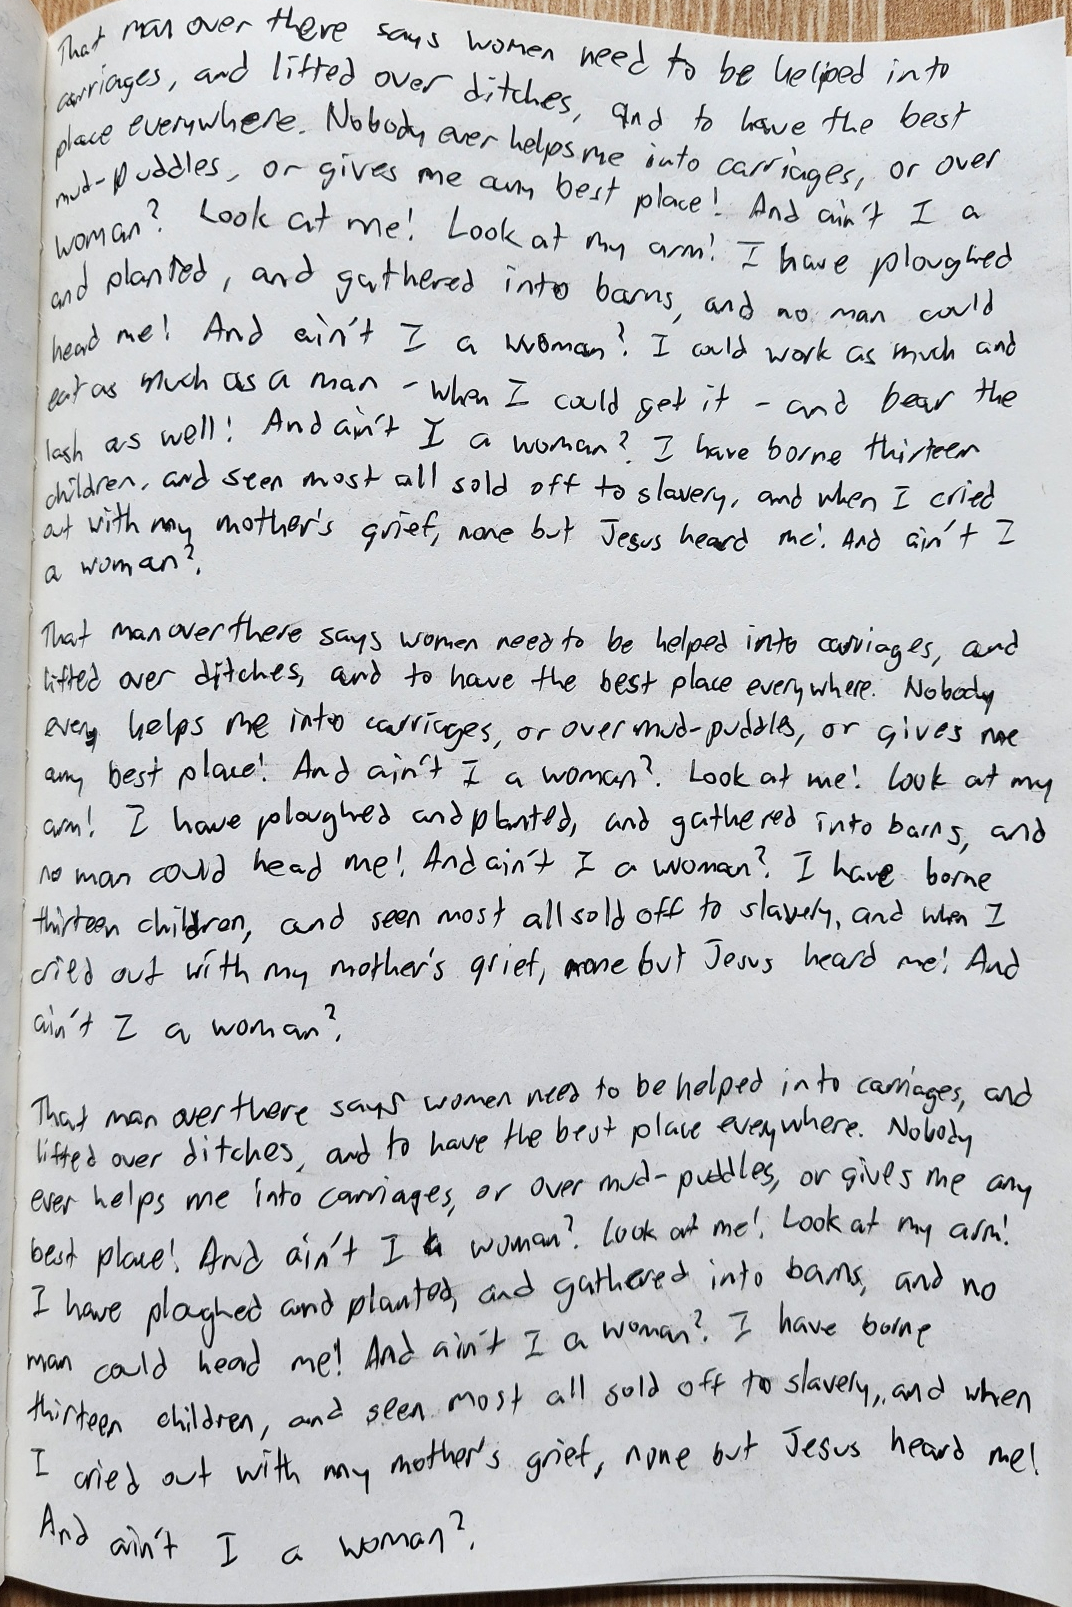 That man over there says women need to be helped into
carriages, and lifted over ditches, and to have the best
place everywhere. Nobody ever helps me into carriages, or over
mud-puddles, or gives me any best place! And ain't I a
woman? Look at me! Look at my arm! I have ploughed
and planted, and gathered into barns, and no man could
head me! And ain't I a woman? I could work as much and
eat as much as a man - when I could get it - and bear the
lash as well! And ain't I a woman? I have borne thirteen
children, and seen most all sold off to slavery, and when I cried
out with my mother's grief, none but Jesus heard me! And ain't I
a woman?
That man over there says women need to be helped into carriages, and
lifted over ditches, and to have the best place everywhere. Nobody
every helps me into carriages, or over mud-puddles, or gives me
any best place! And ain't I a woman? Look at me! Look at my
arm! I have ploughed and planted, and gathered into barns, and
no man could head me! And ain't I a woman? I have borne
thirteen children, and seen most all sold off to slavely, and when I
cried out with my mother's grief, none but Jesus heard me! And
ain't I a woman?
That man over there says women need to be helped into carriages, and
lifted over ditches, and to have the best place everywhere. Nobody
ever helps me into carriages, or over mud-puddles, or gives me any
best place! And ain't I a woman? Look at me! Look at my arm!
I have ploghed and planted, and gathered into barns, and no
man could head me! And ain't I a woman? I have borne
thirteen children, and seen most all sold off to slavely, and when
I cried out with my mother's grief, none but Jesus heard me!
And ain't I a woman?